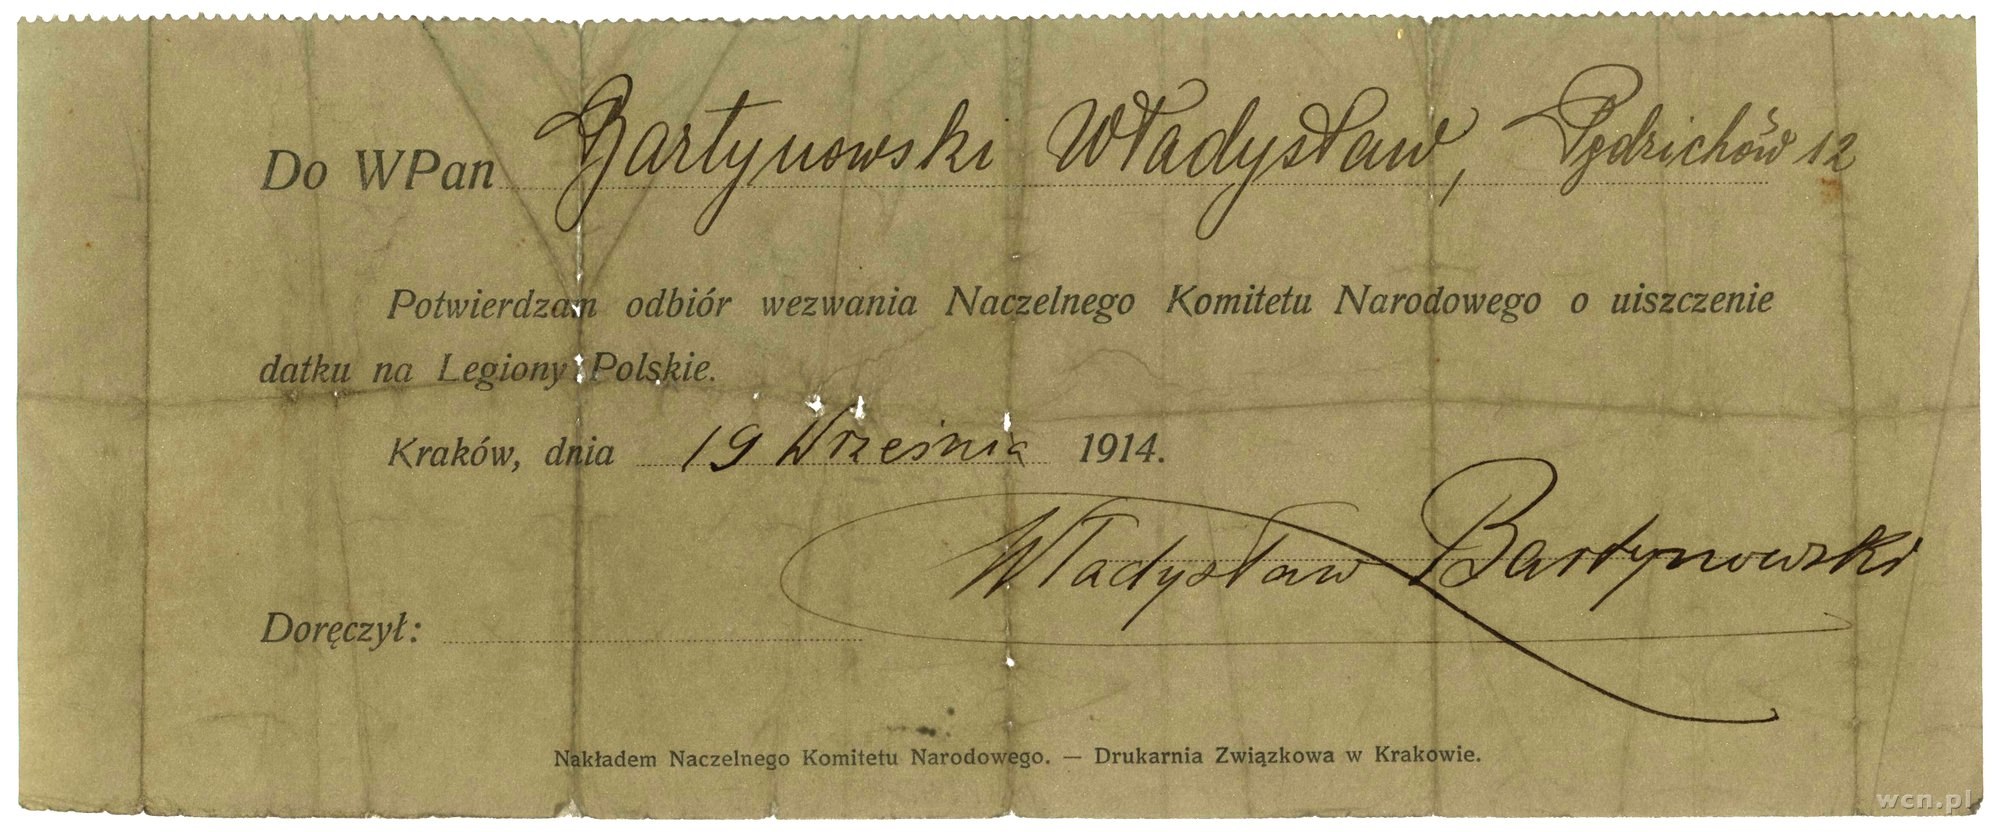 Do WPan Bartynowski Władysław, Pędzichów 12
Potwierdzam odbiór wezwania Naczelnego Komitetu Narodowego o uiszczenie
datku na Legiony Polskie.
Kraków, dnia 19 Września 1914.
Władysław Bartynowski
Doręczył:
Nakładem Naczelnego Komitetu Narodowego. — Drukarnia Związkowa w Krakowie.
wcn.pl